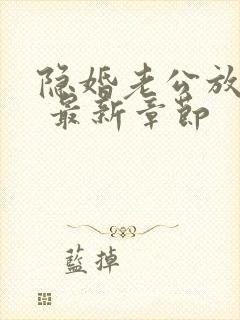 隐婚老公放
最新章节
蓝掉